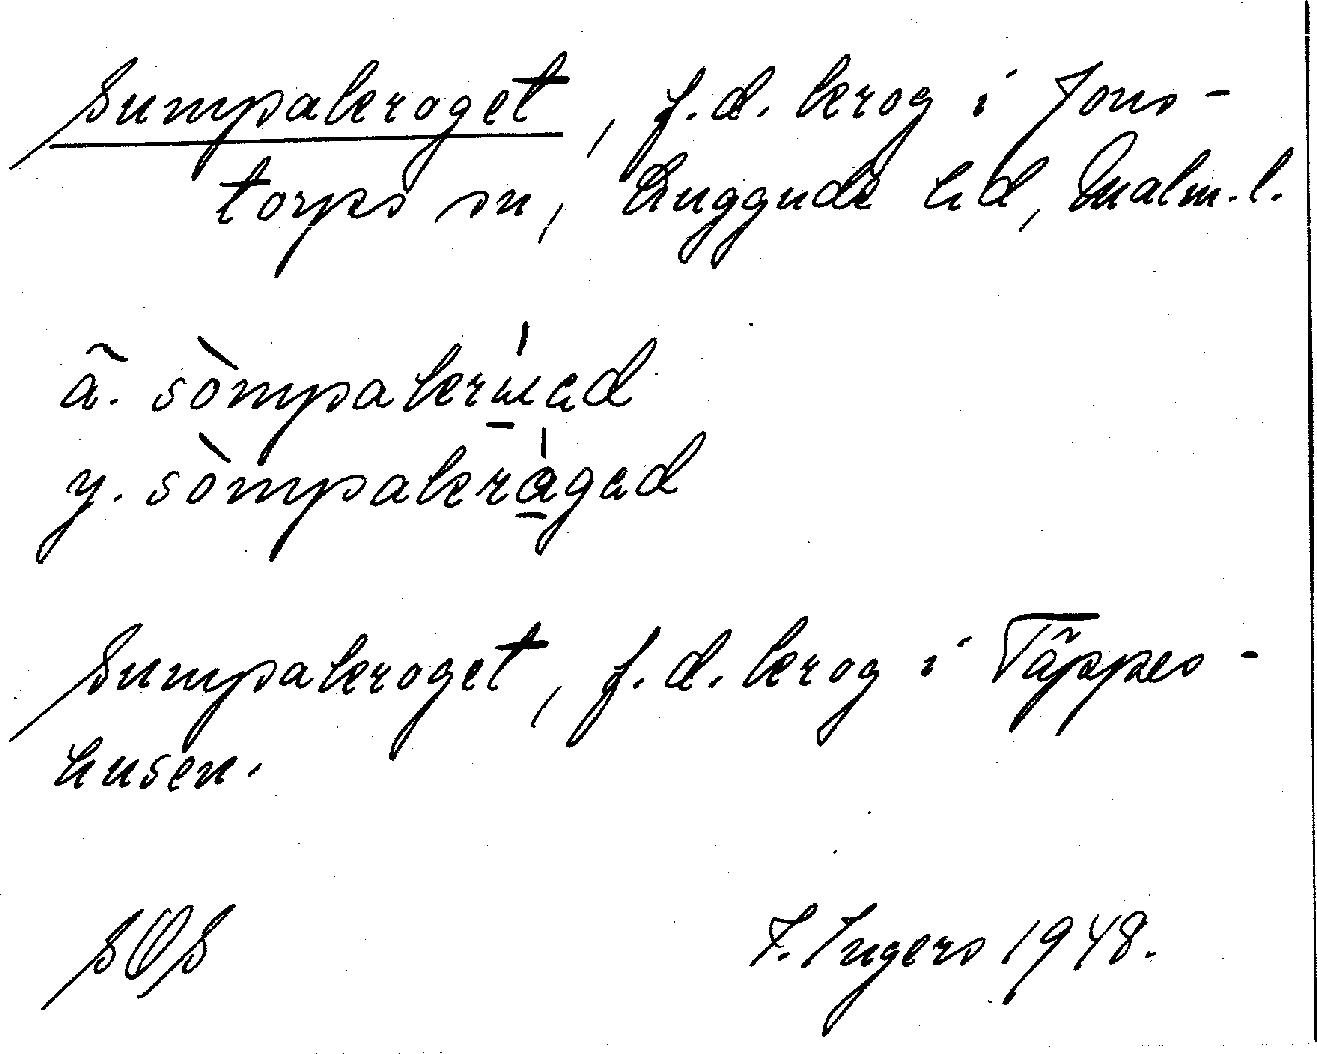 Sumpakroget, f.d. krog i Jons-
torps sn, Luggude hd, Malm.l.
ä. sòmpakrɯ́əd
y. sòmpakrågəd
Sumpakroget, f.d. krog i Täppes-
husen.
SOS F. Ingers 1948.